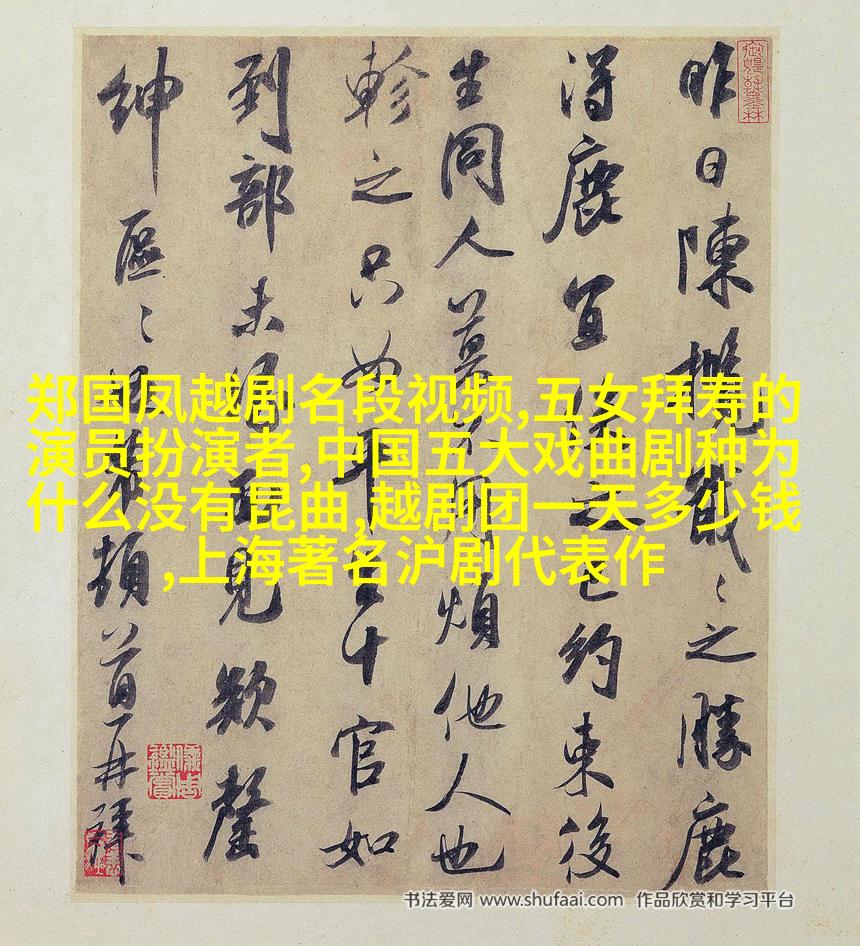 郑国凤越剧名段视频,五女拜寿的
演员扮演者,中国五大戏曲剧种为
什么没有昆曲,越剧团一天多少钱
,上海著名沪剧代表作
昨日陳 之勝鹿
得鹿宜 之 約束後
生同人 煩他人也
軫之只如 十官如
到部未 見欵罄
紳區〻 頓首再拜
书法爱网 www.shufaai.com 作品欣赏和学习平台